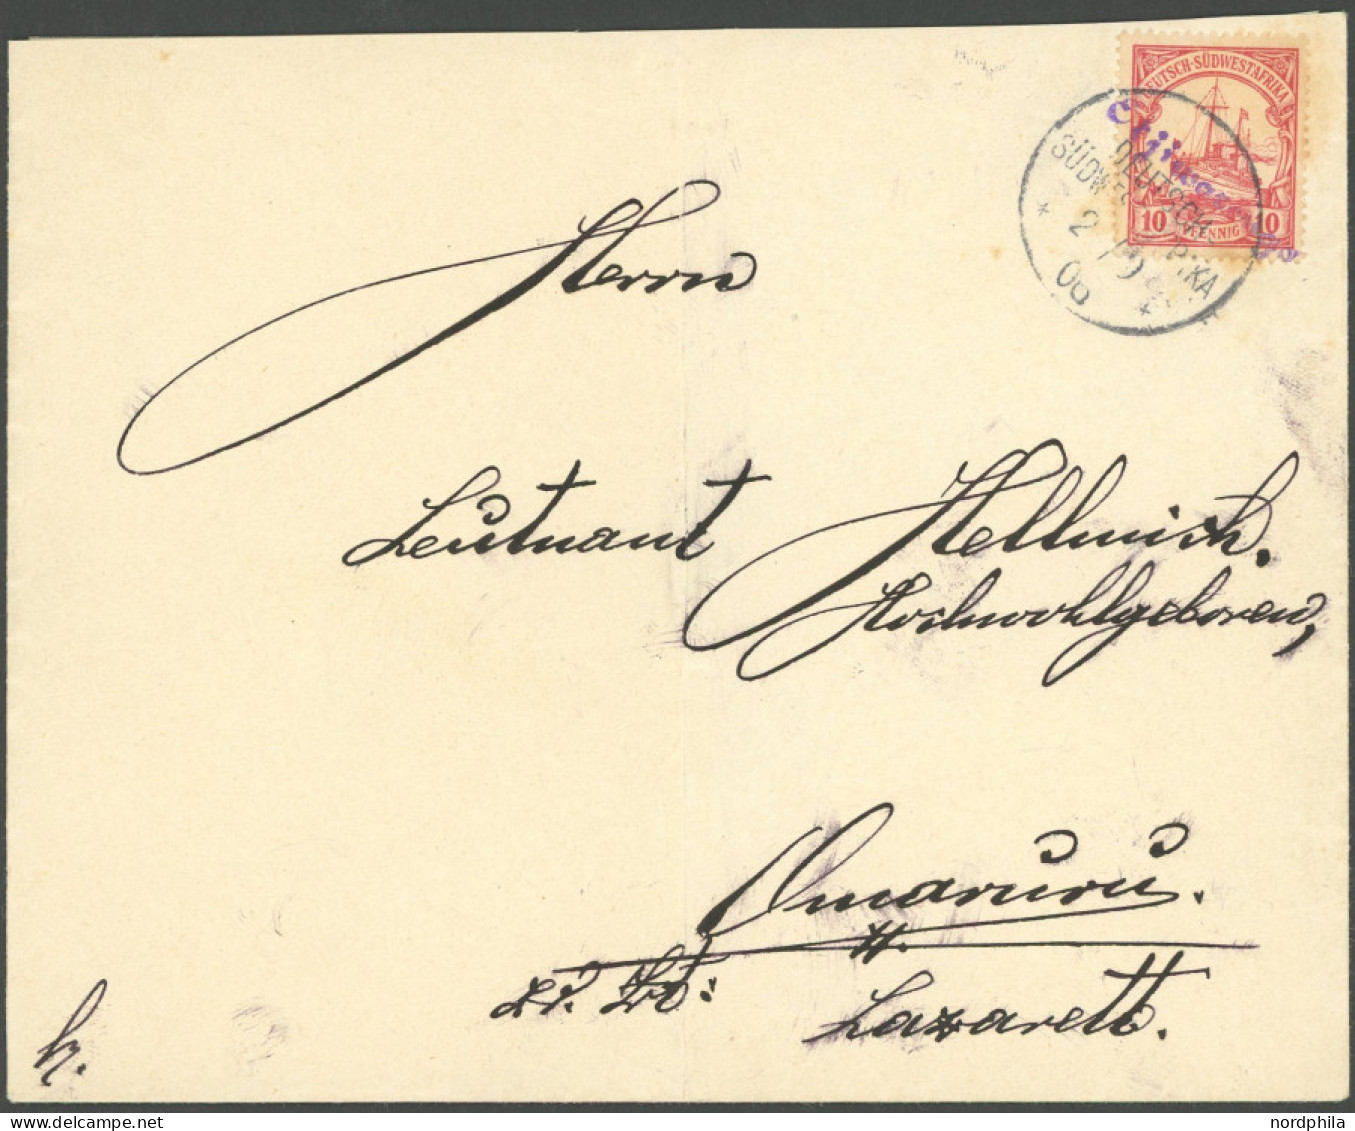 DEUTSCH-SÜDWESTAFRIKA
10 PFENNIG 10
DEUTSCH-
SÜDWESTAFRIKA
* 2/9 *
06
Herrn
Leutnant Hellmich.
Hochwohlgeboren,
Omaruru.
Lazarett.
nordphila